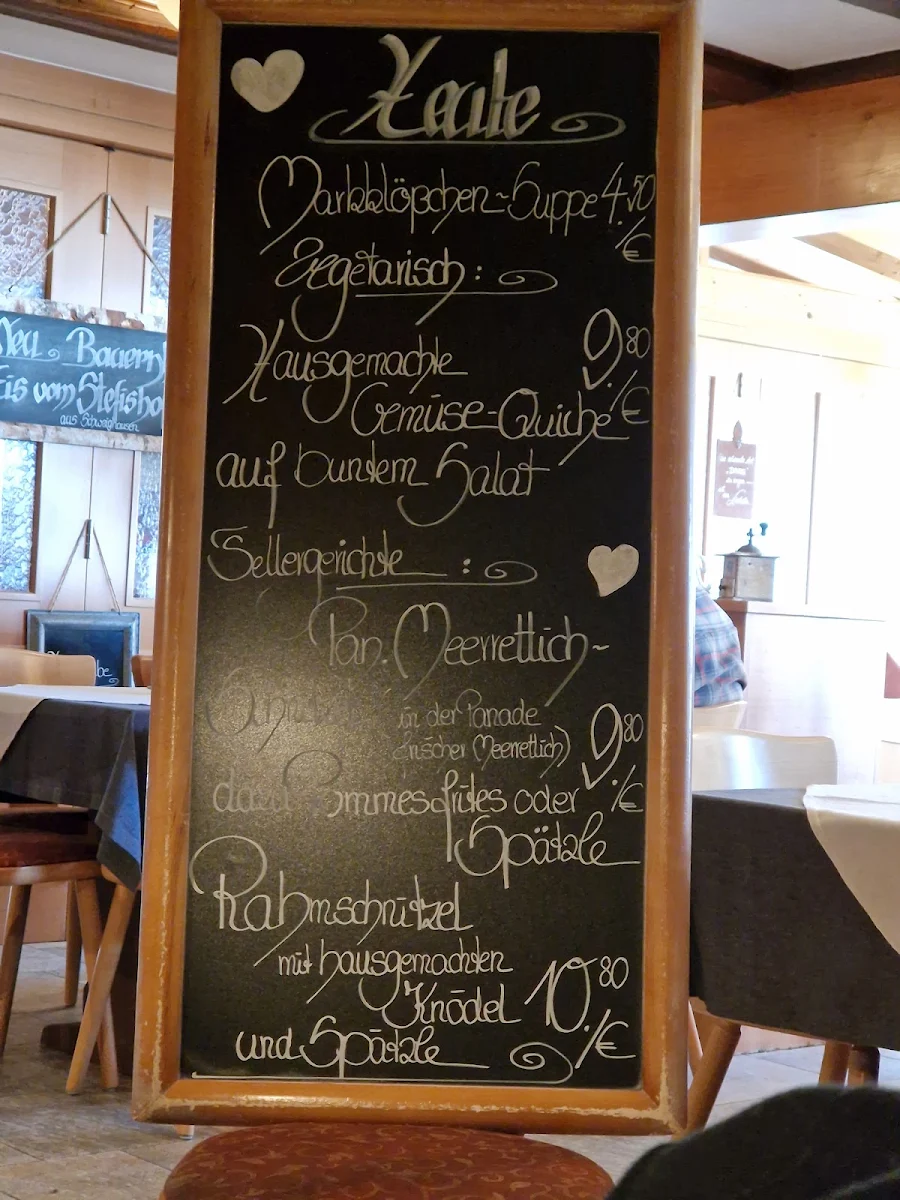 Heute
Markklöpchen-Suppe 4.50
./€
Vegetarisch:
Hausgemachte 9 80
Gemüse-Quiche ./€
auf buntem Salat
Tellergerichte:
Pan. Meerrettich-
in der Panade
frischer Meerrettich) 9 80
dazu Pommesfrites oder ./€
Spätzle
Rahmschnitzel
mit hausgemachten
Knödel 10 80
und Spätzle ./€
Neu Bauern
Eis vom Stefisho
aus Schweighausen